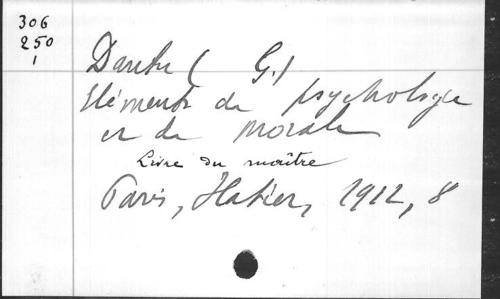 306
250
1
Dauthu ( G.)
Eléments de psychologie
et de morale
Livre du maître
Paris, Hatier, 1912, 8